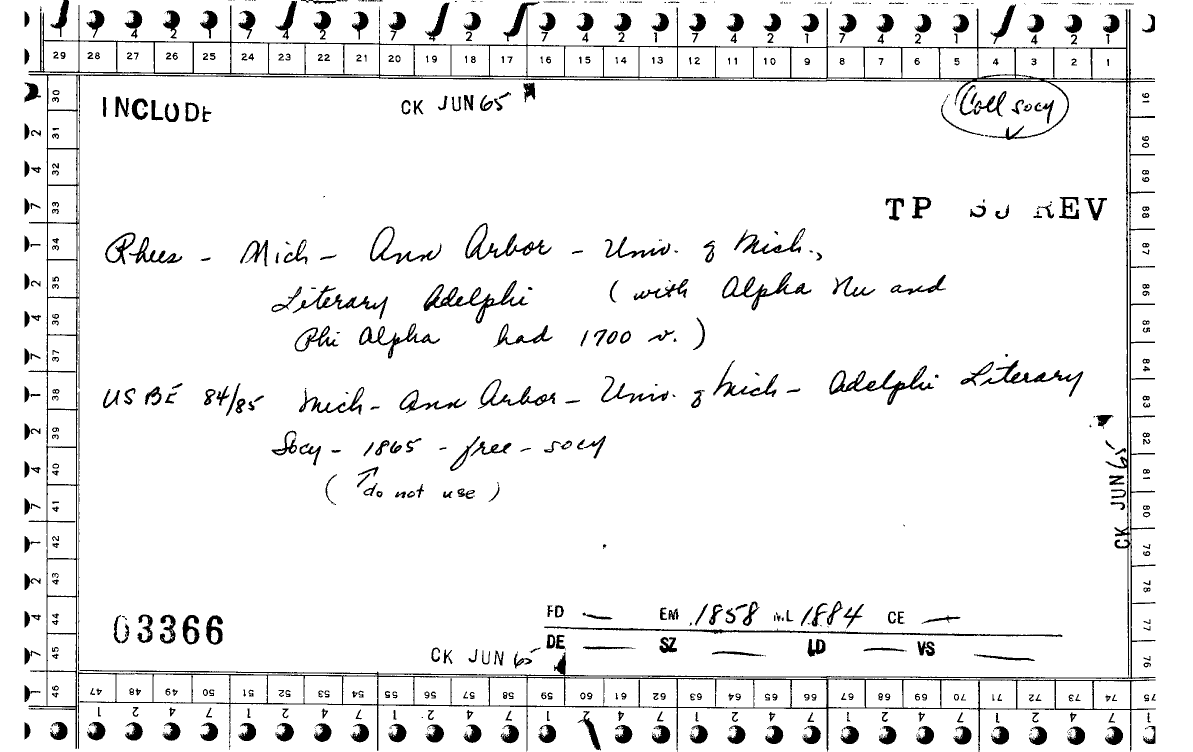 7 4 2 1 7 4 2 1 7 4 2 1 7 4 2 1 7 4 2 1 7 4 2 1 7 4 2 1
29 28 27 26 25 24 23 22 21 20 19 18 17 16 15 14 13 12 11 10 9 8 7 6 5 4 3 2 1
INCLUDE CK JUN 65 Coll socy
TP REV
Rhees - Mich - Ann Arbor - Univ. of Mich.,
Literary Adelphi (with Alpha Nu and
Phi Alpha had 1700 v.)
US BE 84/85 Mich - Ann Arbor - Univ. of Mich - Adelphi Literary
Socy - 1865 - free - socy
(↑do not use)
CK JUN 65
03366
FD — EM 1858 ML 1884 CE —
DE — SZ — LD — VS —
CK JUN 65
30 31 32 33 34 35 36 37 38 39 40 41 42 43 44 45 46
47 48 49 50 51 52 53 54 55 56 57 58 59 60 61 62 63 64 65 66 67 68 69 70 71 72 73 74 75
76 77 78 79 80 81 82 83 84 85 86 87 88 89 90 91